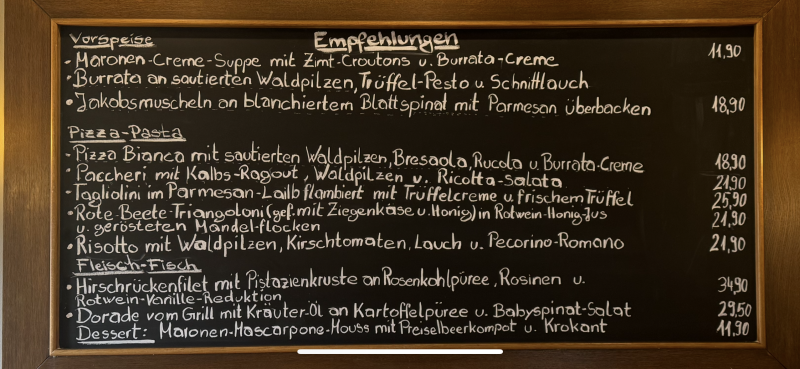 Vorspeise
Empfehlungen
• Maronen-Creme-Suppe mit Zimt-Croutons u. Burrata-Creme 11,90
• Burrata an sautierten Waldpilzen, Trüffel-Pesto u Schnittlauch
• Jakobsmuscheln an blanchiertem Blattspinat mit Parmesan überbacken 18,90
Pizza-Pasta
• Pizza Bianca mit sautierten Waldpilzen, Bresaola, Rucola u Burrata-Creme 18,90
• Paccheri mit Kalbs-Ragout, Waldpilzen u. Ricotta-Salata 21,90
• Tagliolini im Parmesan-Laib flambiert mit Trüffelcreme u frischem Trüffel 25,90
• Rote-Beete-Triangoloni (gef. mit Ziegenkäse u. Honig) in Rotwein-Honig-Jus 21,90
u. gerösteten Mandel-flocken
• Risotto mit Waldpilzen, Kirschtomaten, Lauch u. Pecorino-Romano 21,90
Fleisch-Fisch
• Hirschrückenfilet mit Pistazienkruste an Rosenkohlpüree, Rosinen u. 34,90
Rotwein-Vanille-Reduktion
• Dorade vom Grill mit Kräuter-Öl an Kartoffelpüree u. Babyspinat-Salat 29,50
Dessert: Maronen-Mascarpone-Mouss mit Preiselbeerkompot u. Krokant 11,90